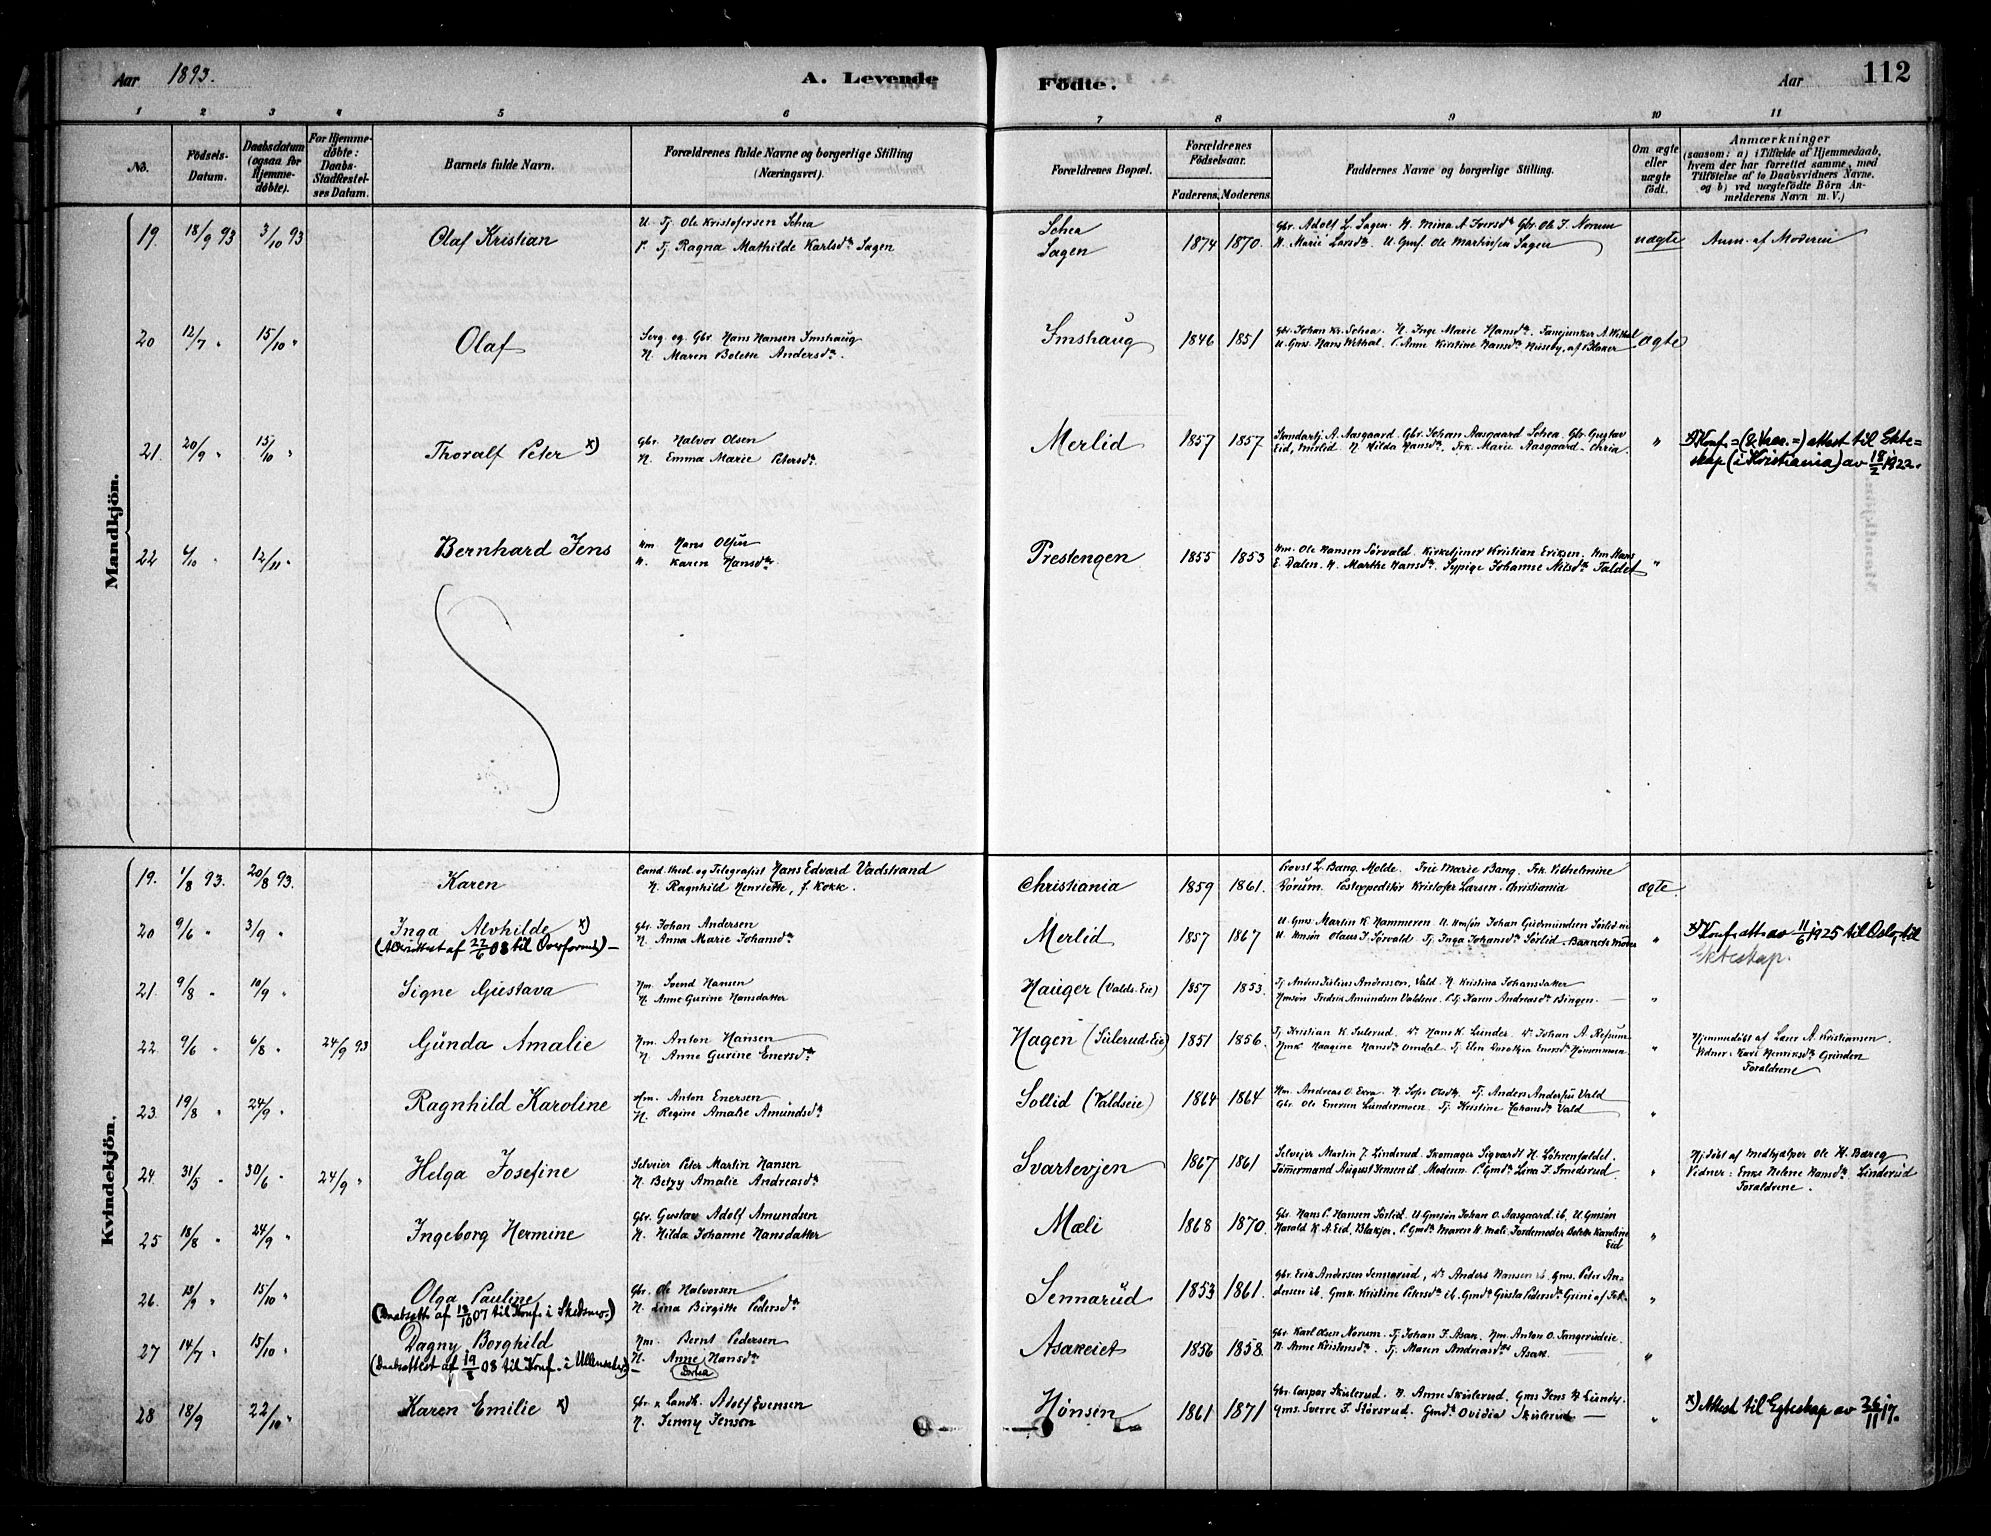 Aar 1893.
A. Levende Födte.
Aar
112
1 2 3 4 5 6 7 8 9 10 11
No.
Födsels-Datum.
Daabsdatum (ogsaa for Hjemme-døbte).
For Hjemme-døbte: Daabs-Stadfæstel-ses Datum.
Barnets fulde Navn.
Forældrenes fulde Navne og borgerlige Stilling (Næringsvei).
Forældrenes Bopæl.
Forældrenes Födselsaar.
Faderens. Moderens.
Faddernes Navne og borgerlige Stilling.
Om ægte eller uægte født.
Anmærkninger (saasom: a) i Tilfælde af Hjemmedaab, hvem der har forrettet samme, med Tilføtelse af to Daabsvidners Navne. og b) ved uægtefödte Börn An-melderens Navn m. V.)
Mandkjön.
19. 18/9 93 3/10 93 Olaf Kristian
U. Tj. Ole Kristofersen Schea
P. Tj. Ragna Mathilde Karlsdtr Sagen
Schea
Sagen
1874 1870.
Gbr. Adolf L. Sagen. K. Mina A Iversdtr Gbr. Ole J. Norum
K. Marie Larsdtr. U. Gmf. Ole Martinsen Sagen
uægte
Anm. af Moderen
20 12/7 " 15/10 " Olaf
Serg. og Gbr. Hans Hansen Imshaug
K. Maren Bolette Andersdtr.
Imshaug 1846 1851
Gbr. Johan Kr. Schea. K. Inge Marie Hansdtr. Fanejunker A. Wethal
U. Gms. Hans Wethal. P. Anne Kirstine Hansdtr Huseby, af Blaker
ægte
21. 20/9 " 15/10 " Thoralf Peter x)
Gbr. Halvor Olsen
K. Emma Marie Petersdtr.
Merlid 1857 1857
A. Aasgaard. Gbr. Johan Aasgaard Schea. Gbr. Gustav
Eid, Merlid K. Hilda Hansdtr. Frk. Marie Aasgaard. Chria.
"
attest til Ekte=
skap (i Kristiania) av 18/2 1922.
22 4/10 " 12/11 " Bernhard Jens
Hm Hans Olsen
K. Karen Hansdtr
Prestengen 1855 1853
Hm. Ole Hansen Sörvald. Kirketjener Kristian Eriksen. Hm Hans
E. Dalen. K. Marthe Hansdtr. Sypige Johanne Nilsdtr Faldet
"
Kvindekjön.
19. 1/8 93. 20/8 93. Karen
Cand. theol. og Telegrafist Hans Edvard Vadstrand
K. Ragnhild Henriette, f. Kokk.
Christiania 1859 1861.
Provst L. Bang. Molde. Frue Marie Bang. Frk. Vilhelmine
Rørum. Postexpeditör Kristofer Larsen. Christiania
ægte.
20 9/6 " 3/9 " Inga Alvhilde x)
Gbr. Johan Andersen
K. Anna Marie Johansdtr
Merlid 1857 1867
U. Gms. Martin K. Hammeren U. Hmsön Johan Gudmundsen Sörlid
U. Hmsön Olaus J. Sörvald Tj. Inga Johansdtr Sörlid. Barnets Moder
"
x) Konf. att. av 11/6 1925 til Oslo, til
Ekteskap.
21. 9/8 " 10/9 " Signe Gustava
Hm. Svend Hansen
K. Anne Gurine Hansdatter
Hauger (Valds. Eie) 1857 1853.
Tj. Anders Julius Andressen, Vald. K. Kristina Johansdatter
Hmsön Fredrik Amundsen Valdeie. P. Tj. Karen Andreasdtr Bingen. —
"
22. 9/6 " 6/8 " 24/9 93 Gunda Amalie
Hm. Anton Hansen
K. Anne Gurine Enersdtr
Hagen (Sulerud-Eie) 1851 1856.
Tj. Kristian K. Sulerud. Hans K. Lunder. Johan A. Refsum
Hmk Haagine Hansdtr Omdal. Tj. Elen Dorothea Enersdtr
"
Hjemmedöbt af Lærer A. Kristiansen.
Vidner: Kari Henriksdtr Grinden
Forældrene
23. 19/8 " 24/9 " Ragnhild Karoline
Hm. Anton Enersen
K. Regine Amalie Amundsdtr
Sollid (Valdseie) 1864 1864
Hm. Andreas O. K. Sofie Olsdtr. Tj. Anders Andersen Vald
Gbr. Ole Enersen Lundermoen. Tj. Kristine Johansdtr Vald
"
24. 31/5 " 30/6 " 24/9 " Helga Josefine
Selveier Peter Martin Hansen
K. Betzy Amalie Andreasdtr
Svartevjen 1867 1861
Selveier Martin J. Linderud. Skomager Sigvardt H. Löhrenfaldet
Tömmermand August Jensen ib. Moderen. P. Gmdtr Lina J. Smederud.
"
Hjdöbt af Medhjælper Ole H. Bareg
Vidner: Enke Helene Hansdtr. Linderud
Forældrene.
25 18/8 " 24/9 " Ingeborg Hermine
Gbr. Gustav Adolf Amundsen
K. Hilda Johanne Hansdatter
Mæli 1868 1870.
Gbr. Hans P. Hansen Sörlid. U. Gmsön Johan O. Aasgaard ib. U. Gmsön
Harald K. A. Eid, Blakjer. P. Gmdtr Maren H. Mæli Jordemoder Bolette Karoline
Eid
"
26. 13/9 " 15/10 " Olga Pauline
(Daabsatt. af 18/10 07 til Konf. i Skedsmo.)
Gbr. Ole Halvorsen
K. Lina Birgitte Pedersdtr
Sennerud 1853 1861.
Gbr. Erik Andersen Sennerud, Anders Hansen ib. Gms. Peter An-
dersen ib. Gmk. Kristine Petersdtr ib. Gmdtr Gusta Pedersdtr Grini af Fet.
"
27 14/7 " 15/10 " Dagny Borghild
(Daabsattest af 19/8 08 til Konf. i Ullensaker)
Hm. Bernt Pedersen
K. Anne Hansdtr
— Dortea
Asakeiet 1856 1858.
Gbr. Karl Olsen Norum. Tj. Johan F. Asak. Hm. Anton O. Tangerudeie.
K. Anne Kristensdtr. Tj. Maren Andreasdtr Asak.
"
28 18/9 22/10 " Karen Emilie x)
Gbr. & Landh. Adolf Evensen
K. Jenny Jensen
Hønsin 1861 1871
Gbr. Caspar Skulerud. K. Anne Skulerud. Gms Jens K Lunder.
Gms. Sverre F. Störsrud. Gmdtr Ovidia Skulerud —
"
x) Attest til Egteskap av 26/11 17.